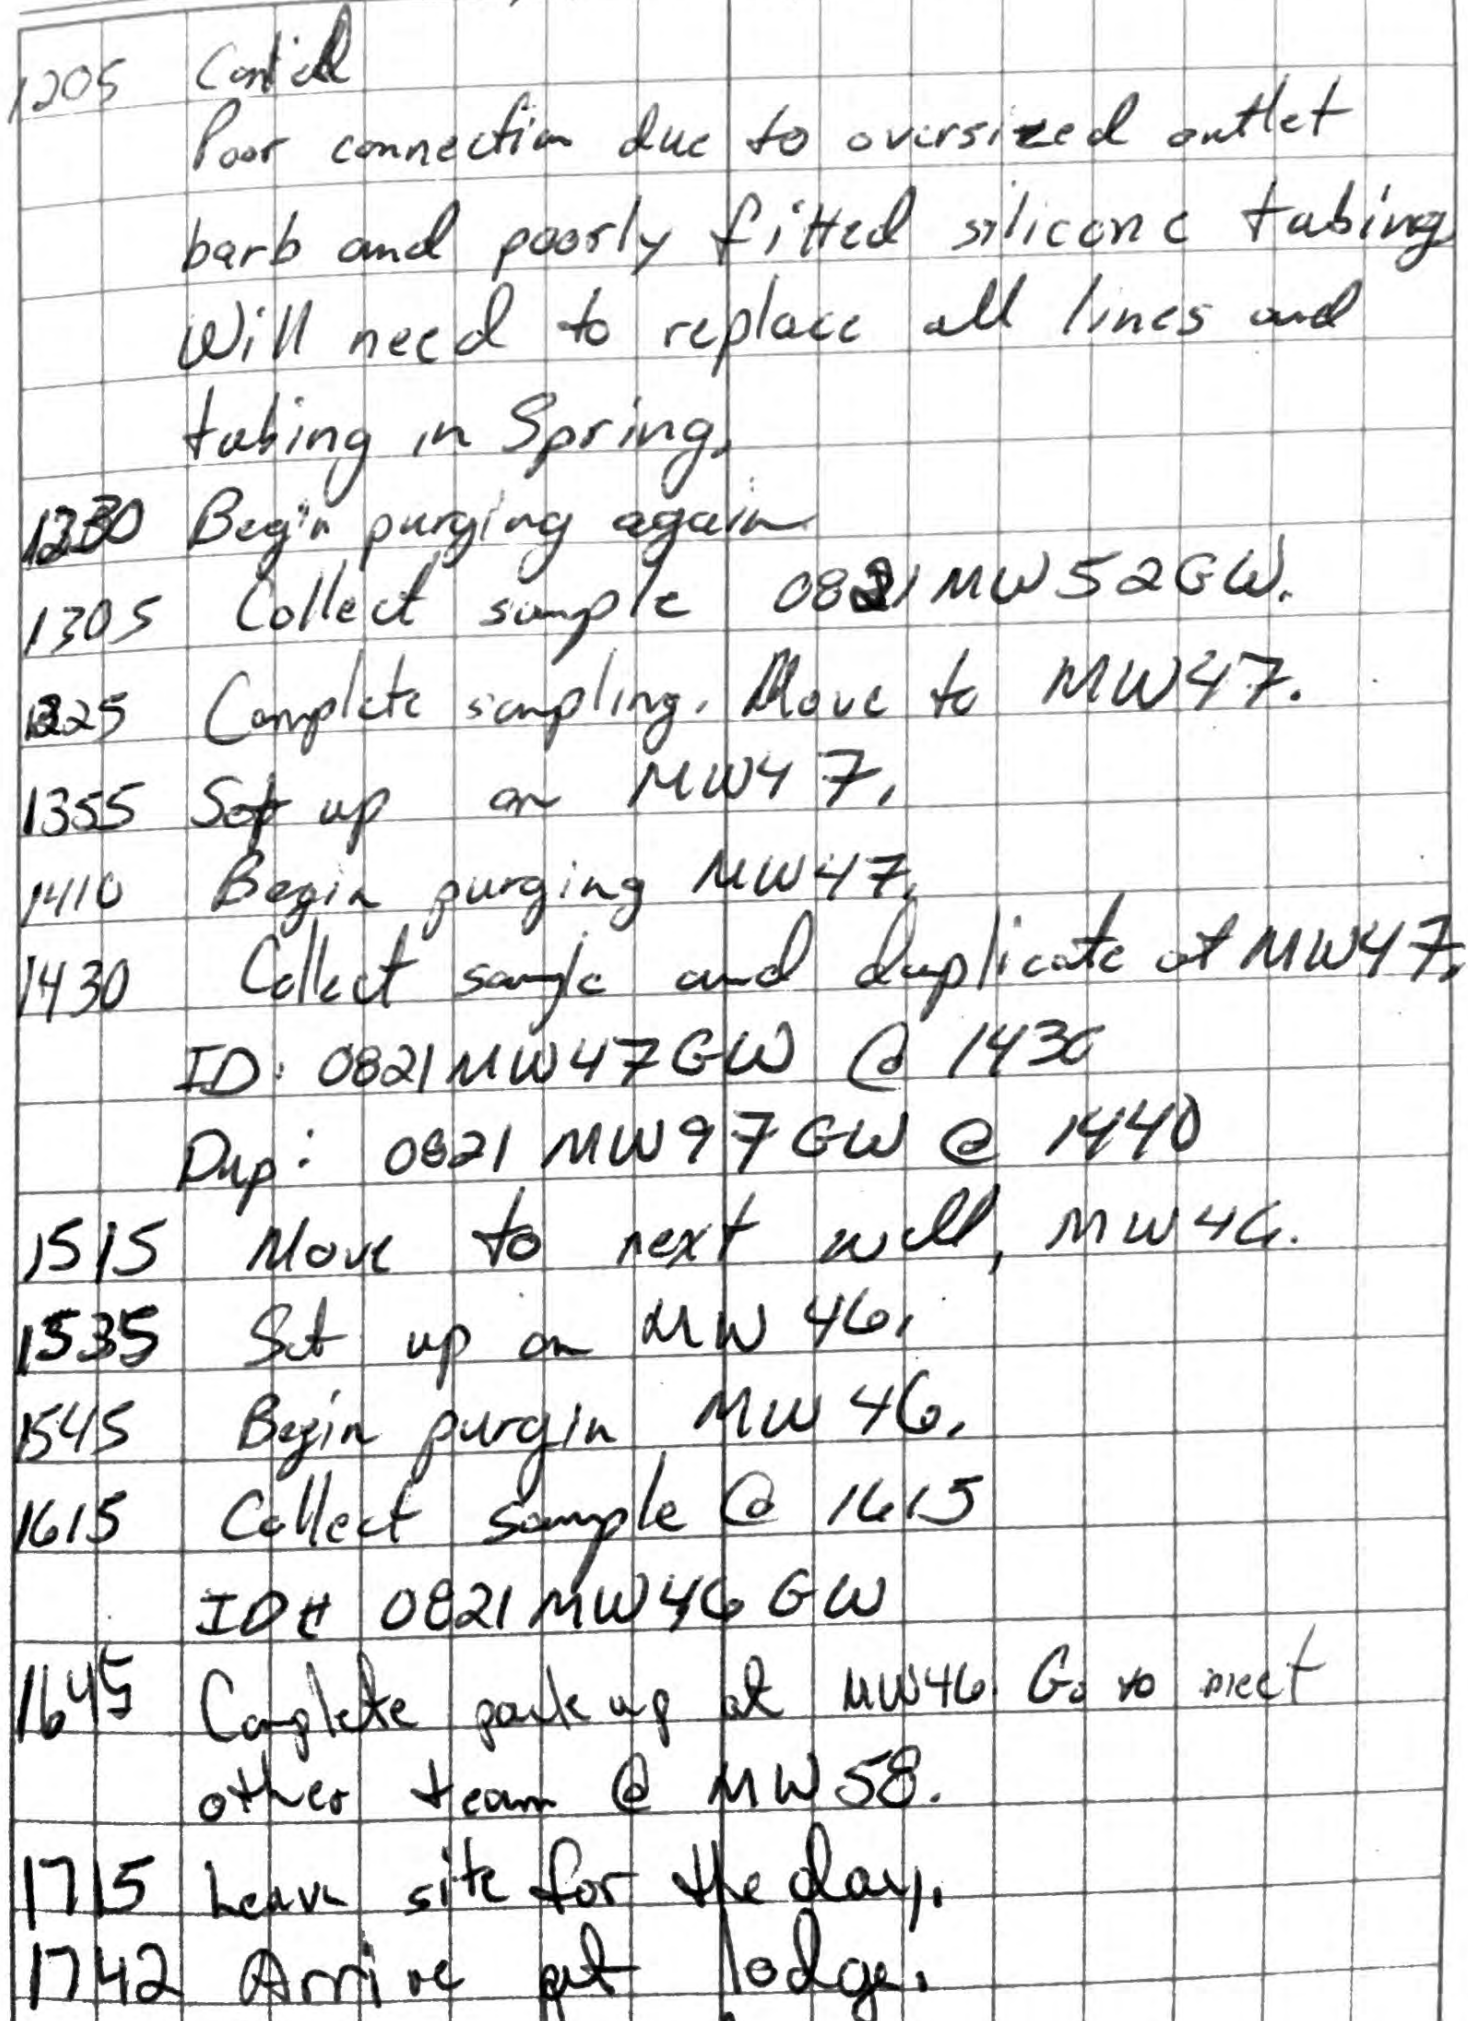 1205 Cont'd
Poor connection due to oversized outlet
barb and poorly fitted silicone tubing
Will need to replace all lines and
tubing in Spring.
1230 Begin purging again.
1305 Collect sample 0821MW52GW.
1325 Complete sampling. Move to MW47.
1355 Set up on MW47.
1410 Begin purging MW47.
1430 Collect sample and duplicate at MW47.
ID: 0821MW47GW @ 1430
Dup: 0821MW97GW @ 1440
1515 Move to next well, MW46.
1535 Set up on MW46.
1545 Begin purgin MW46.
1615 Collect sample @ 1615
ID# 0821MW46GW
1645 Complete pack up at MW46. Go to meet
other team @ MW58.
1715 Leave site for the day.
1742 Arrive at lodge.